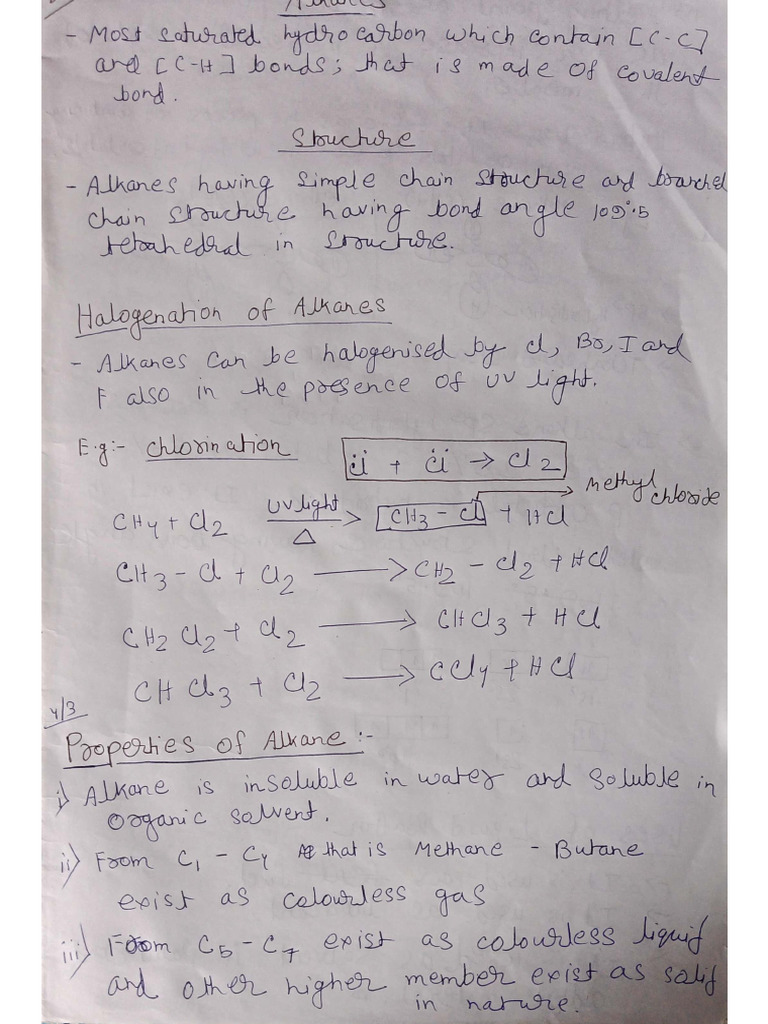 Alkanes
- Most saturated hydrocarbon which contain [C-C]
and [C-H] bonds; that is made of covalent
bond.
Structure
- Alkanes having simple chain structure and branched
chain structure having bond angle 109°.5
tetrahedral in structure.
Halogenation of Alkanes
- Alkanes can be halogenised by Cl, Br, I and
F also in the presence of UV light.
E.g:- chlorination
Ċl + Ċl → Cl2
Methyl
chloride
CH4 + Cl2 UV light △ → CH3 - Cl + HCl
CH3 - Cl + Cl2 → CH2 - Cl2 + HCl
CH2 Cl2 + Cl2 → CHCl3 + HCl
CH Cl3 + Cl2 → CCl4 + HCl
4/3
Properties of Alkane :-
i) Alkane is insoluble in water and soluble in
organic solvent.
ii) From C1 - C4 that is Methane - Butane
exist as colourless gas
iii) From C5 - C7 exist as colourless liquid
and other higher member exist as solid
in nature.